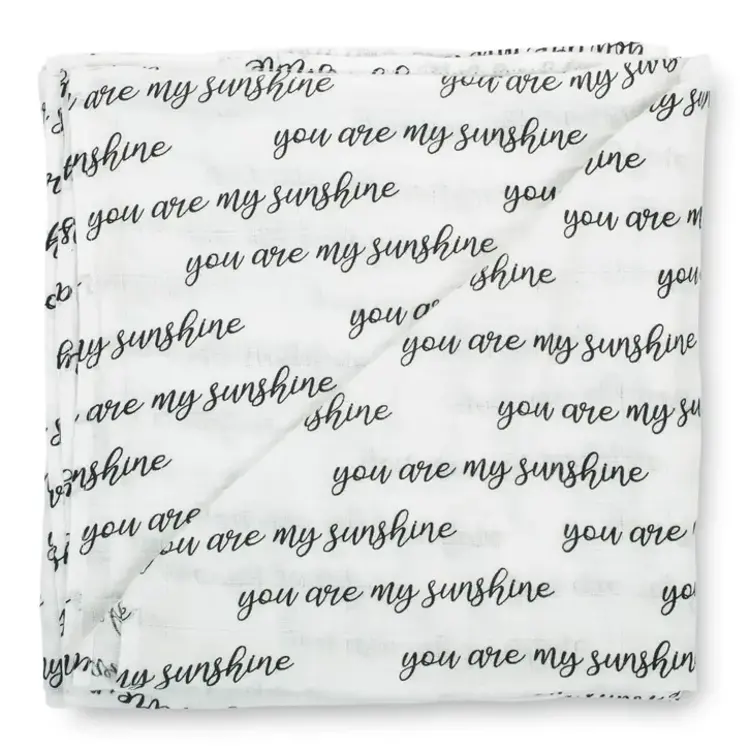 are my sunshine you are my
you are my sunshine
you are my sunshine you
you are m
you are my sunshine
shine you
you
my sunshine
you are my sunshine
are my sunshine
shine you are my
you are my sunshine
you are
are my sunshine you are
you are my sunshine
my sunshine you are my